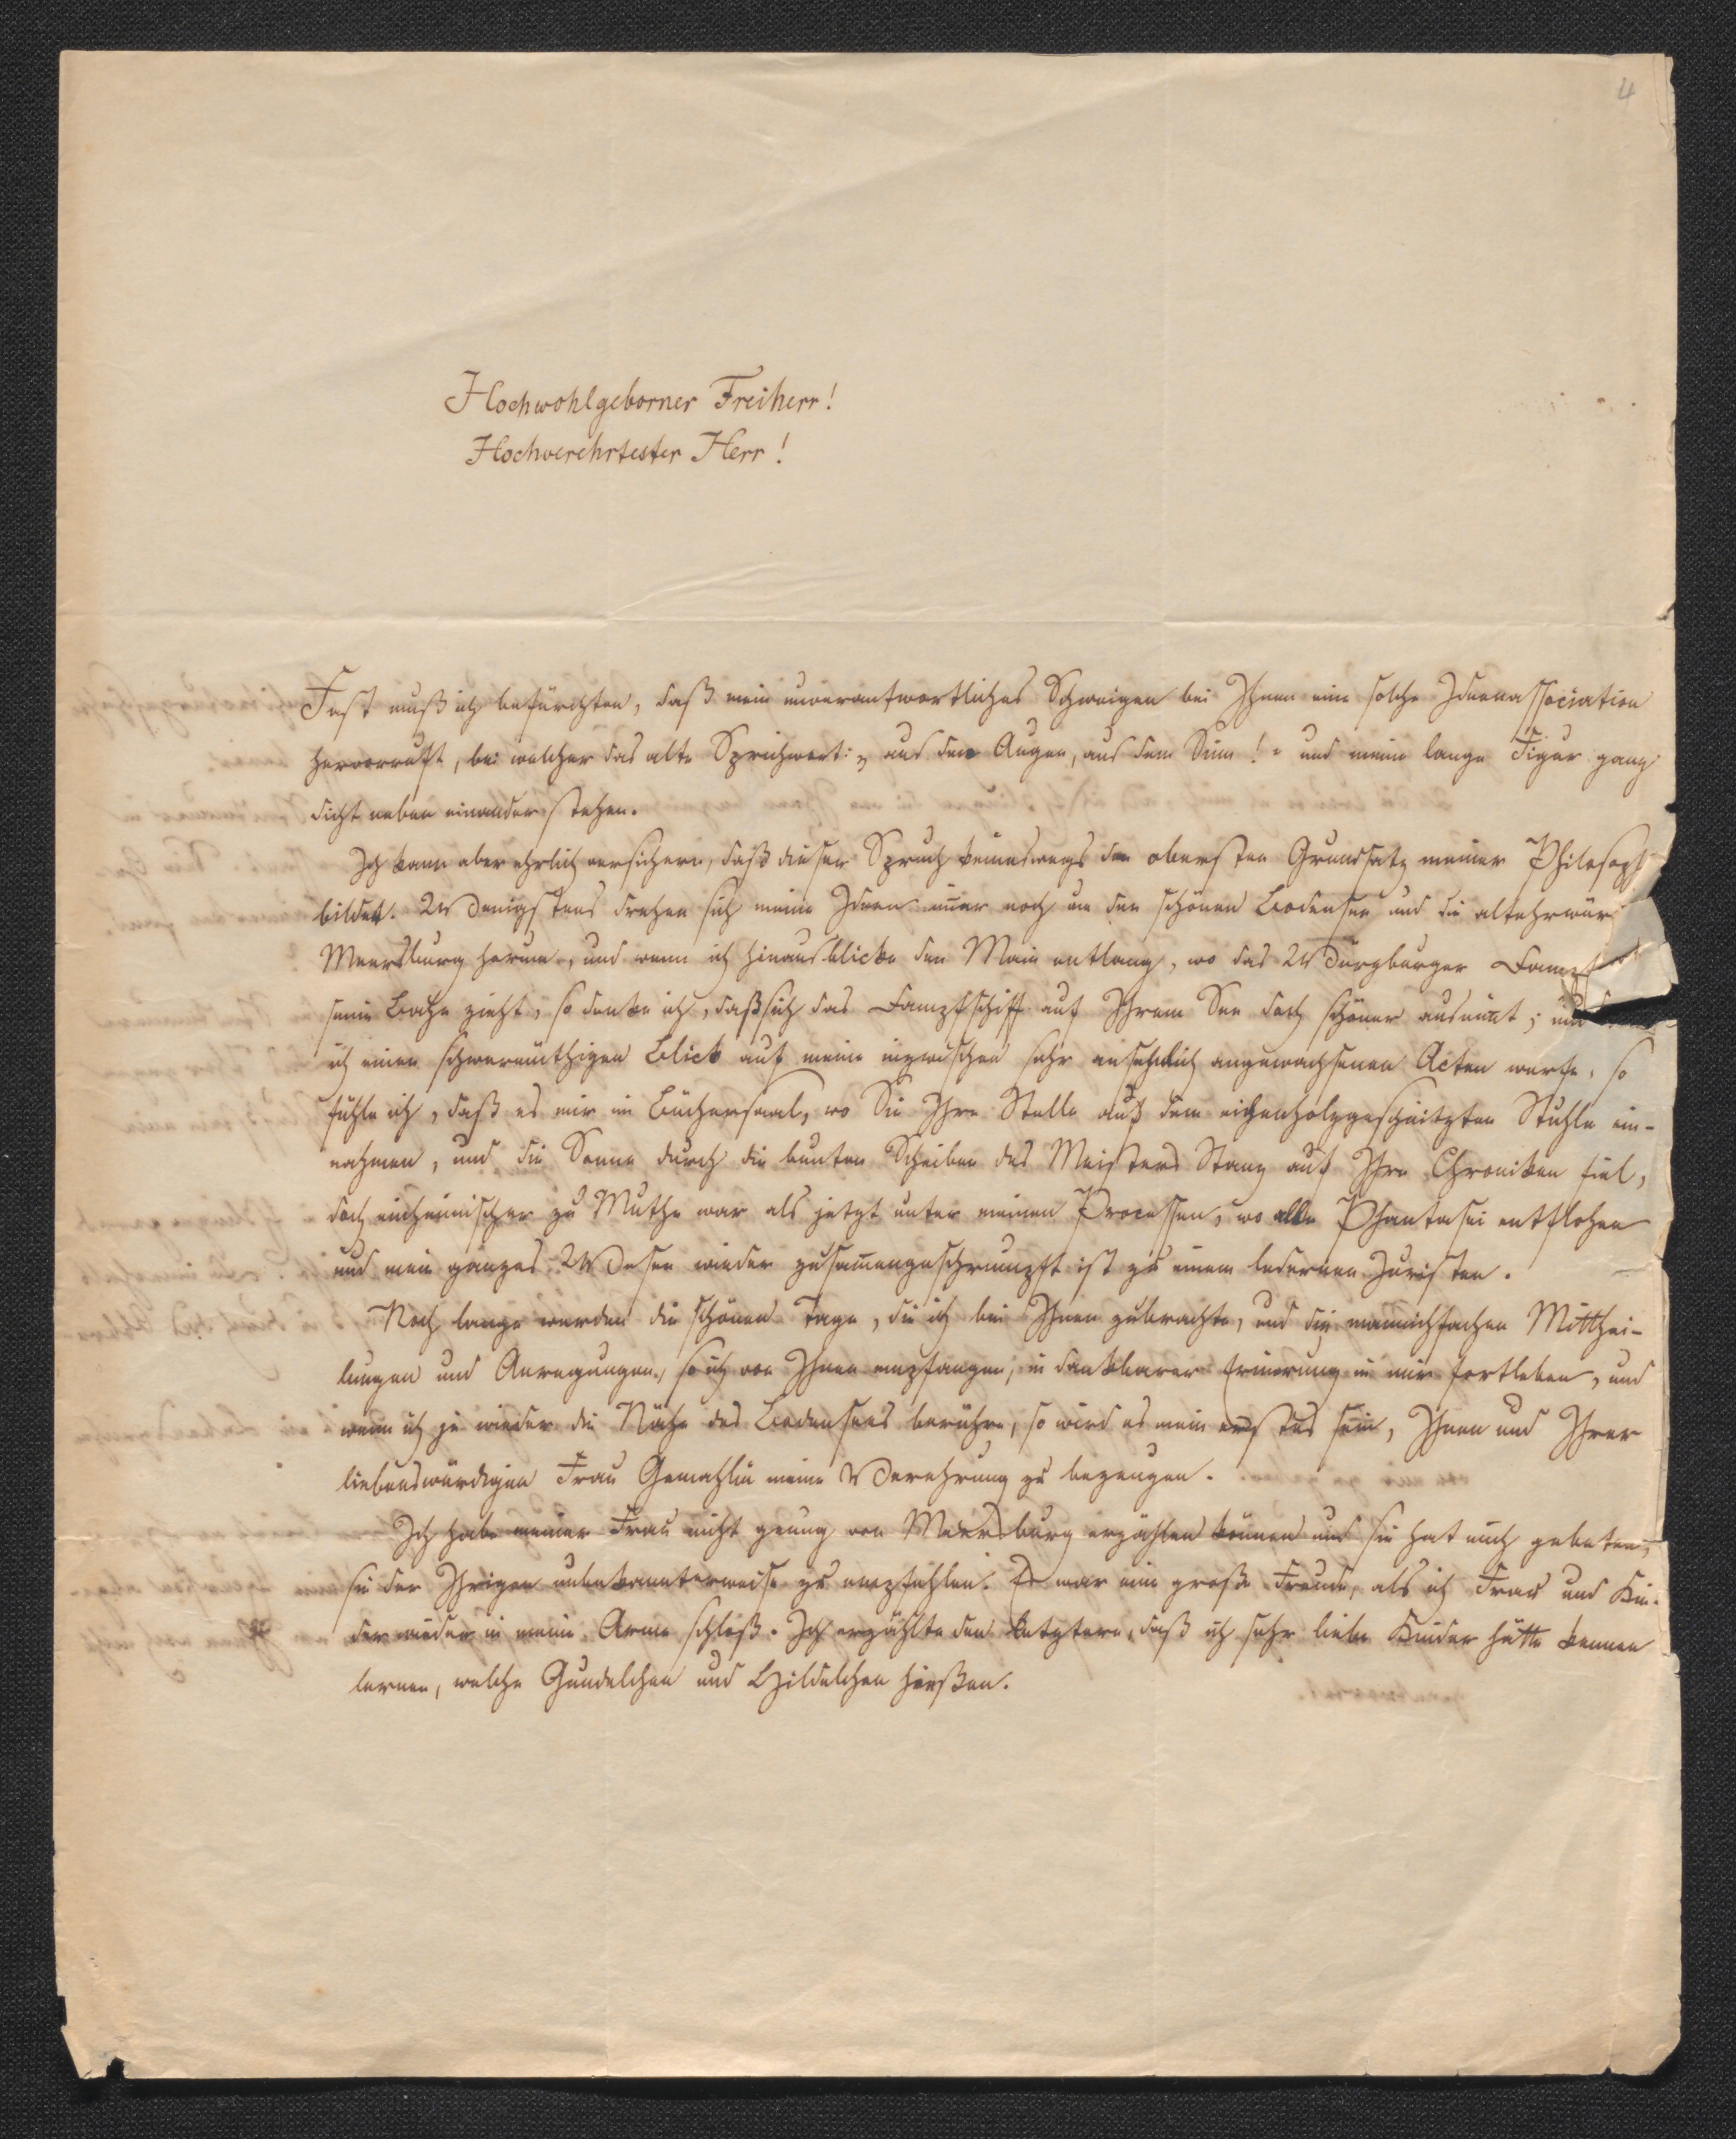 4
Hochwohlgeborner Freiherr!
Hochverehrtester Herr!
Fast muß ich befürchten, daß mein unverantwortliches Schweigen bei Ihnen eine solche Ideenassociation
hervorruft, bei welcher das alte Sprichwort: „aus den Augen, aus dem Sinn!" und meine lange Figur ganz
dicht neben einander stehen.
Ich kann aber ehrlich versichern, daß dieser Spruch keineswegs den obersten Grundsatz meiner Philosoph
bildet. Wenigstens drehen sich meine Ideen im̄er noch um den schönen Bodensee und die altehrwür
Meersburg herum, und wenn ich hinausblicke den Main entlang, wo das Würzburger Dampf
seine Bahn zieht, so denke ich, daß sich das Dampfschiff auf Ihrem See doch schöner ausnim̄t; und
ich einen schwermüthigen Blick auf meine inzwischen sehr ansehnlich angewachsenen Acten werfe, so
fühle ich, daß es mir im Büchersaal, wo Sie Ihre Stelle auf dem eichenholzgeschnitzten Stuhle ein-
nahmen, und die Sonne durch die bunten Scheiben des Meisters Stanz auf Ihre Chroniken fiel,
doch einheimischer zu Muthe war als jetzt unter meinen Processen, wo alle Phantasie entflohen
und mein ganzes Wesen wieder zusam̄engeschrumpft ist zu einem ledernen Juristen.
Noch lange werden die schönen Tage, die ich bei Ihnen zubrachte, und die mannichfachen Mitthei-
lungen und Anregungen, so ich von Ihnen empfangen, in dankbarer Erinerung in mir fortleben, und
wenn ich je wieder die Nähe des Bodensees berühre, so wird es mein erstes sein, Ihnen und Ihrer
liebenswürdigen Frau Gemahlin meine Verehrung zu bezeugen.
Ich habe meiner Frau nicht genug von Meersburg erzählen können und sie hat mich gebeten,
sie den Ihrigen unbekannterweise zu empfehlen. Es war eine große Freude, als ich Frau und Kin-
der wieder in meine Arme schloß. Ich erzählte den letztern, daß ich sehr liebe Kinder hätte kennen
lernen, welche Gundelchen und Hildelchen hießen.